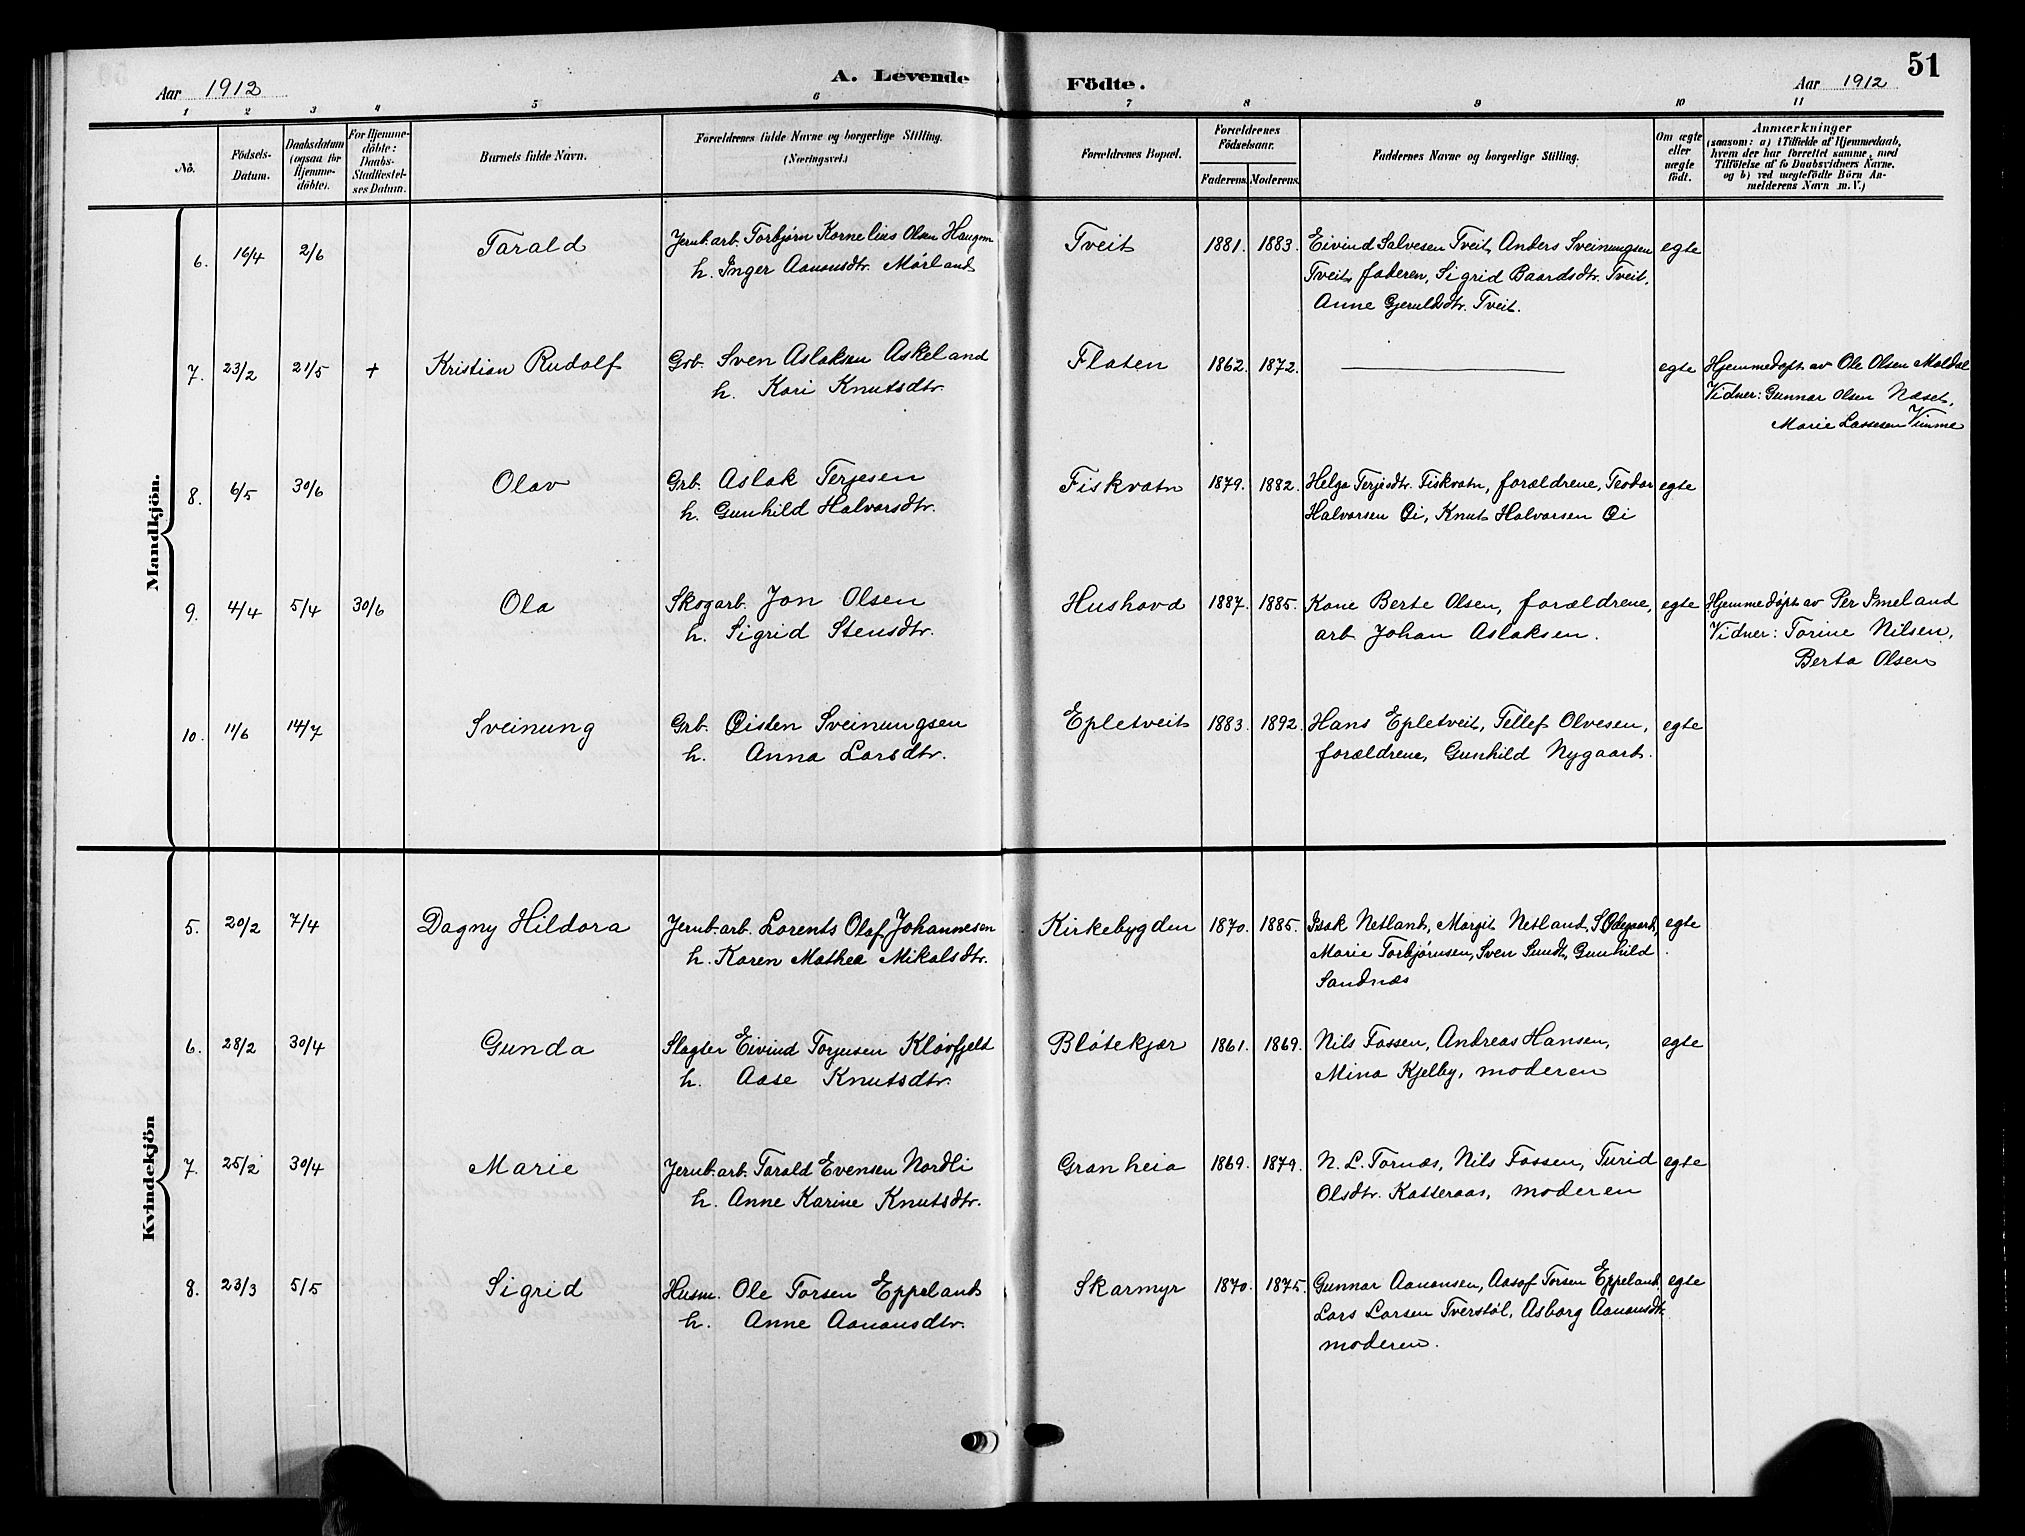 51
A. Levende Födte.
Aar 1912
Aar 1912
1 2 3 4 5 6 7 8 9 10 11
No.
Födsels-Datum.
Daabsdatum (ogsaa for Hjemme-döbte).
For Hjemme-döbte: Daabs-Stadfestel-ses Datum.
Barnets fulde Navn.
Forældrenes fulde Navne og borgerlige Stilling.
(Næringsvei.)
Forældrenes Bopæl.
Forældrenes Födselsaar.
Faderens. Moderens.
Faddernes Navne og borgerlige Stilling.
Om ægte eller uægte födt.
Anmærkninger
(saasom: a) i Tilfælde af Hjemmedaab,
hvem der har forrettet samme, med
Tilföielse af to Daabsvidners Navne.
og b) ved uægtefödte Börn An-
melderens Navn m. V.)
Mandkjön.
6. 16/4 2/6 Tarald Jernb.arb. Torbjørn Kornelius Olsen Haugom Tveit 1881. 1883. Eivind Salvesen Tveit, Anders Sveinungsen egte
h. Inger Aanonsdtr. Mörland Tveit, faderen, Sigrid Baardsdtr. Tveit,
Anne Gjeruldsdtr. Tveit.
7. 23/2 21/5 + Kristian Rudolf Grb. Sven Aslaksen Askeland Flaten 1862. 1872. egte Hjemmedøpt av Ole Olsen Moldal
h. Kari Knutsdtr. Vidner: Gunnar Olsen Næset,
Marie Lassesen Vimme
8. 6/5 30/6 Olav Grb. Aslak Terjesen Fiskvatn 1879. 1882. Helga Terjesdtr. Fiskvatn, forældrene, Teodor egte
h. Gunhild Halvorsdtr. Halvorsen Øi, Knut Halvorsen Øi
9. 4/4 5/4 30/6 Ola Skogarb. Jon Olsen Hushovd 1887. 1885. Kone Berte Olsen, forældrene, egte Hjemmedøpt av Per Imeland
h. Sigrid Stensdtr. arb. Johan Aslaksen. Vidner: Torine Nilsen,
Berta Olsen
10. 11/6 14/7 Sveinung Grb. Øisten Sveinungsen Epletveit 1883. 1892. Hans Epletveit, Tellef Olvesen, egte
h. Anna Larsdtr. forældrene, Gunhild Nygaard.
Kvindekjön
5. 20/2 7/4 Dagny Hildora Jernb.arb. Lorents Olaf Johannesen Kirkebygden 1870. 1885. Isak Netland, Margit Netland, S. Ødegaard, egte
h. Karen Mathea Mikalsdtr. Marie Torbjørnsen, Sven Sundt, Gunhild
Sandnæs
6. 28/2 30/4 Gunda Slagter Eivind Torjusen Kløvfjell Bløtekjær 1861. 1869. Nils Fossen, Andreas Hansen, egte
h. Aase Knutsdtr. Mina Kjelby, moderen
7. 25/2 30/4 Marie Jernb.arb. Tarald Evensen Nordli Granheia 1869. 1879. N. L. Tornæs, Nils Fossen, Turid egte
h. Anne Karine Knutsdtr. Olsdtr. Katteraas, moderen
8. 23/3 5/5 Sigrid Husm. Ole Torsen Eppeland Skarmyr 1870. 1875. Gunnar Aanonsen, Aasof Torsen Eppeland, egte
h. Anne Aanonsdtr. Lars Larsen Tverstøl, Asborg Aanonsdtr.
moderen.